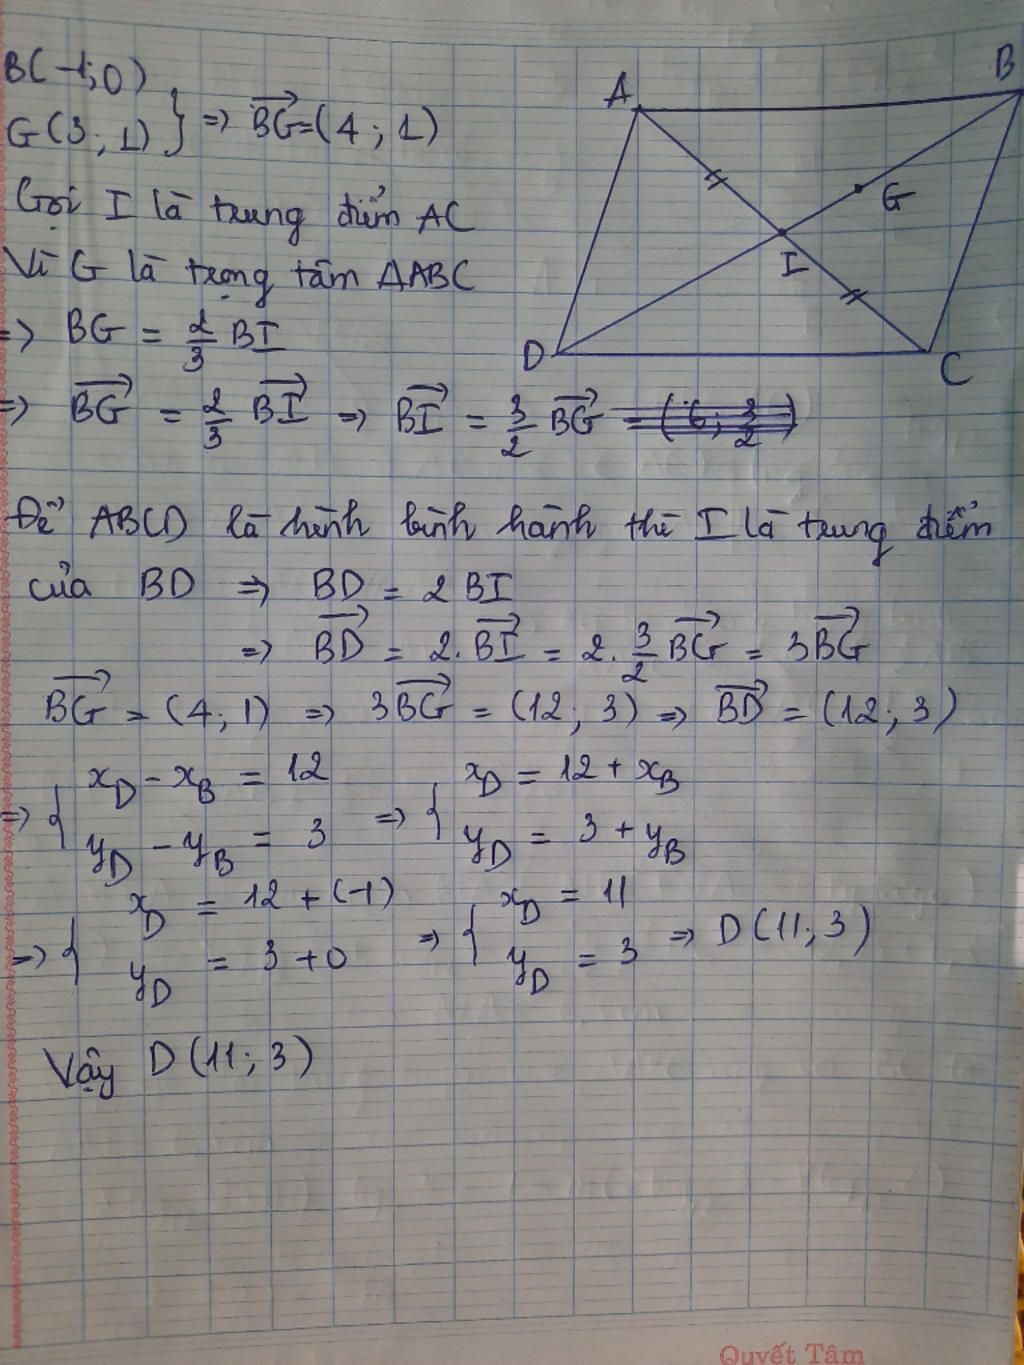 B(-1;0)
G(3;1) } => BG→ = (4;1)
Gọi I là trung điểm AC
Vì G là trọng tâm ΔABC
=> BG = 2/3 BI
=> BG→ = 2/3 BI→ => BI→ = 3/2 BG→ = (6; 3/2)
Để ABCD là hình bình hành thì I là trung điểm
của BD => BD = 2 BI
=> BD→ = 2. BI→ = 2. 3/2 BG→ = 3BG→
BG→ = (4;1) => 3BG→ = (12; 3) => BD→ = (12; 3)
=> { x_D - x_B = 12 => { x_D = 12 + x_B
y_D - y_B = 3 y_D = 3 + y_B
=> { x_D = 12 + (-1) => { x_D = 11 => D(11;3)
y_D = 3 + 0 y_D = 3
Vậy D(11;3)
A
B
G
I
D
C
Quyết Tâm